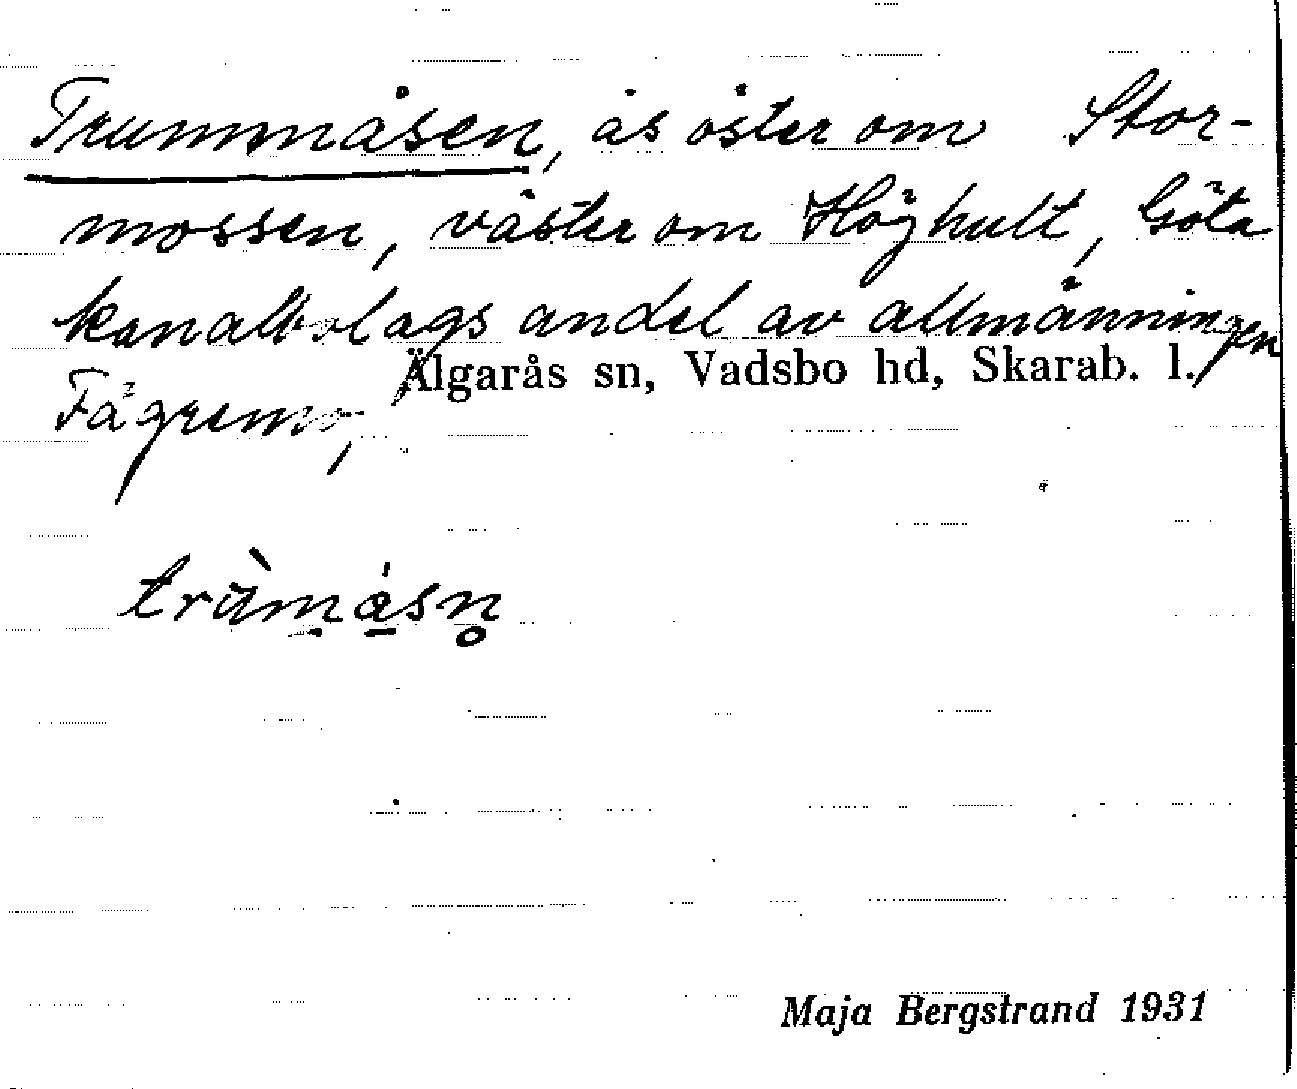 Trummåsen, ås öster om Stor-
mossen, väster om Höghult, Göta
kanalbolags andel av allmänningen
Fägremo, Älgarås sn, Vadsbo hd, Skarab. l.
trùmásn̥
Maja Bergstrand 1931